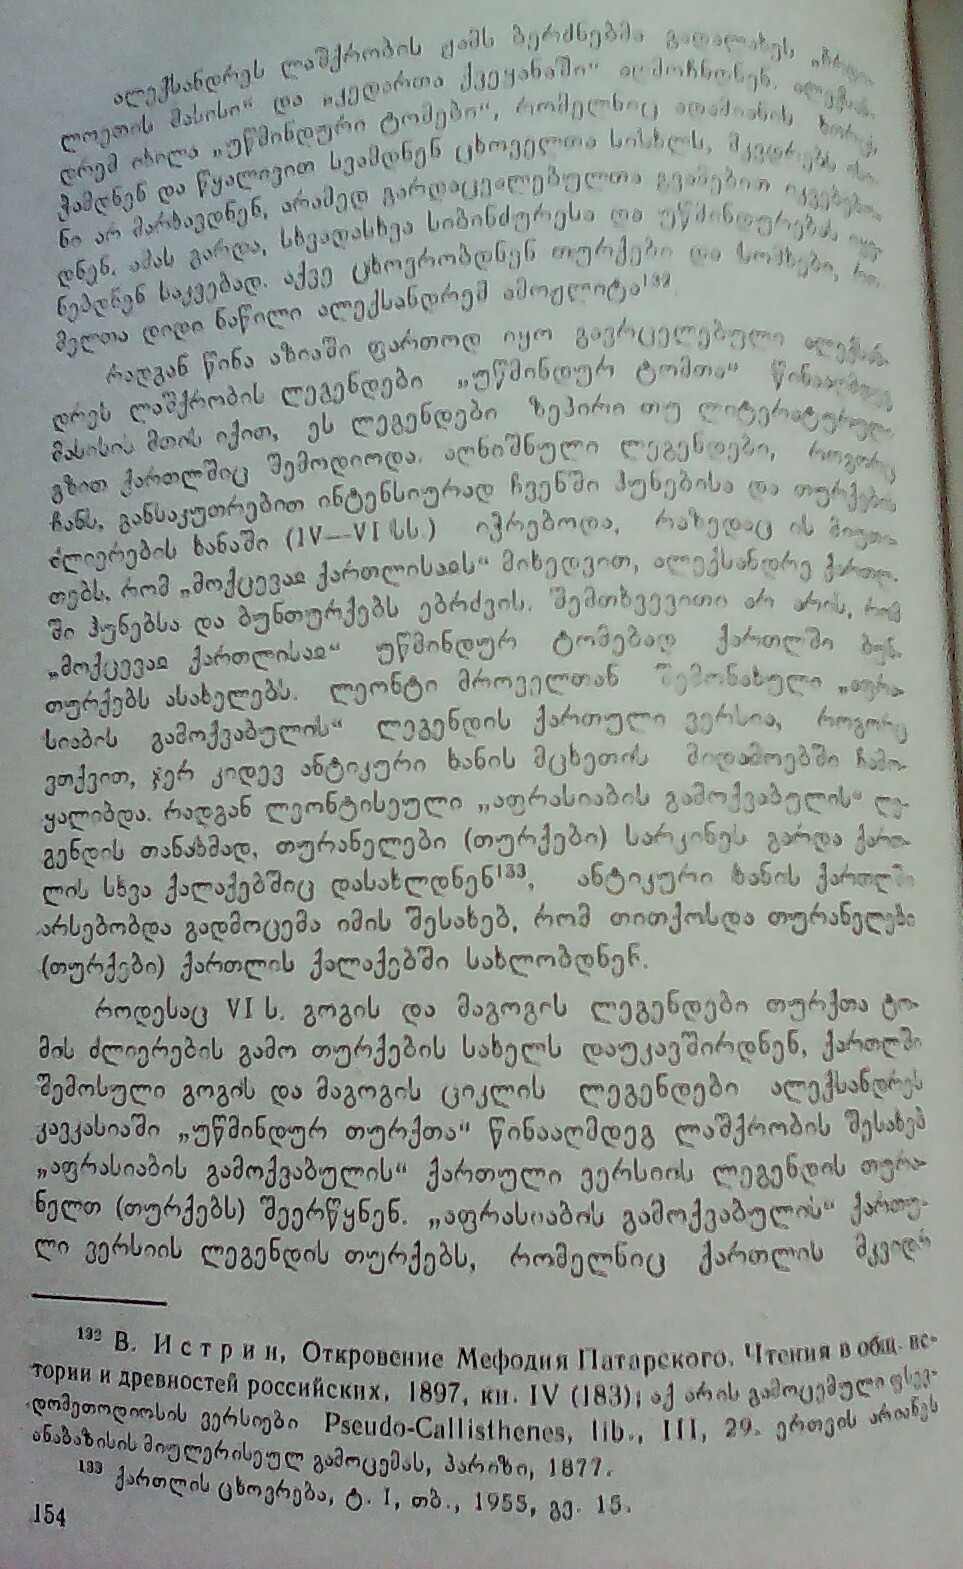 ალექსანდრეს ლაშქრობის ჟამს ბერძნებმა გადალახეს
ლოეთის მასისი“ და „კედართა ქვეყანაში“ აღმოჩნდნენ.
დრემ იხილა „უწმინდური ტომები“, რომელნიც ადამიანის ხორცს
ჭამდნენ და წყალივით სვამდნენ ცხოველთა სისხლს, მკვდრებს
ნი არ მარხავდნენ, არამედ გარდაცვალებულთა გვამებით
დნენ. ამას გარდა, სხვადასხვა სიბინძურესა და უწმინდურებას
ნებდნენ საკვებად. აქვე ცხოვრობდნენ თურქები და სომხები, რო-
მელთა დიდი ნაწილი ალექსანდრემ ამოჟლიტა¹³².
რადგან წინა აზიაში ფართოდ იყო გავრცელებული ალექსან-
დრეს ლაშქრობის ლეგენდები „უწმინდურ ტომთა“ წინააღმდეგ
მასისის მთის იქით, ეს ლეგენდები ზეპირი თუ ლიტერატურული
გზით ქართლშიც შემოდიოდა. აღნიშნული ლეგენდები, როგორც
ჩანს, განსაკუთრებით ინტენსიურად ჩვენში ჰუნებისა და თურქების
ძლიერების ხანაში (IV—VI სს.) იჭრებოდა, რაზედაც ის მიუთი-
თებს, რომ „მოქცევაჲ ქართლისაჲს“ მიხედვით, ალექსანდრე ქართლ-
ში ჰუნებსა და ბუნთურქებს ებრძვის. შემთხვევითი არ არის, რომ
„მოქცევაჲ ქართლისაჲ“ უწმინდურ ტომებად ქართლში ბუნ-
თურქებს ასახელებს. ლეონტი მროველთან შემონახული „აფრა-
სიაბის გამოქვაბულის“ ლეგენდის ქართული ვერსია, როგორც
ვთქვით, ჯერ კიდევ ანტიკური ხანის მცხეთის მიდამოებში ჩამო-
ყალიბდა. რადგან ლეონტისეული „აფრასიაბის გამოქვაბულის“ ლე-
გენდის თანახმად, თურანელები (თურქები) სარკინეს გარდა ქართ-
ლის სხვა ქალაქებშიც დასახლდნენ¹³³, ანტიკური ხანის ქართლში
არსებობდა გადმოცემა იმის შესახებ, რომ თითქოსდა თურანელები
(თურქები) ქართლის ქალაქებში სახლობდნენ.
როდესაც VI ს. გოგის და მაგოგის ლეგენდები თურქთა ტო-
მის ძლიერების გამო თურქების სახელს დაუკავშირდნენ, ქართლში
შემოსული გოგის და მაგოგის ციკლის ლეგენდები ალექსანდრეს
კავკასიაში „უწმინდურ თურქთა“ წინააღმდეგ ლაშქრობის შესახებ
„აფრასიაბის გამოქვაბულის“ ქართული ვერსიის ლეგენდის თურა-
ნელთ (თურქებს) შეერწყნენ. „აფრასიაბის გამოქვაბულის“ ქართუ-
ლი ვერსიის ლეგენდის თურქებს, რომელნიც ქართლის მკვიდრ
¹³² В. Истрин, Откровение Мефодия Патарского. Чтения в общ. ис-
тории и древностей российских, 1897, кн. IV (183); აქ არის გამოცემული ფსევ-
დომეთოდიოსის ვერსიები Pseudo-Callisthenes, lib., III, 29. ერთვის არიანეს
ანაბაზისის მიულერისეულ გამოცემას, პარიზი, 1877.
¹³³ ქართლის ცხოვრება, ტ. I, თბ., 1955, გვ. 15.
154